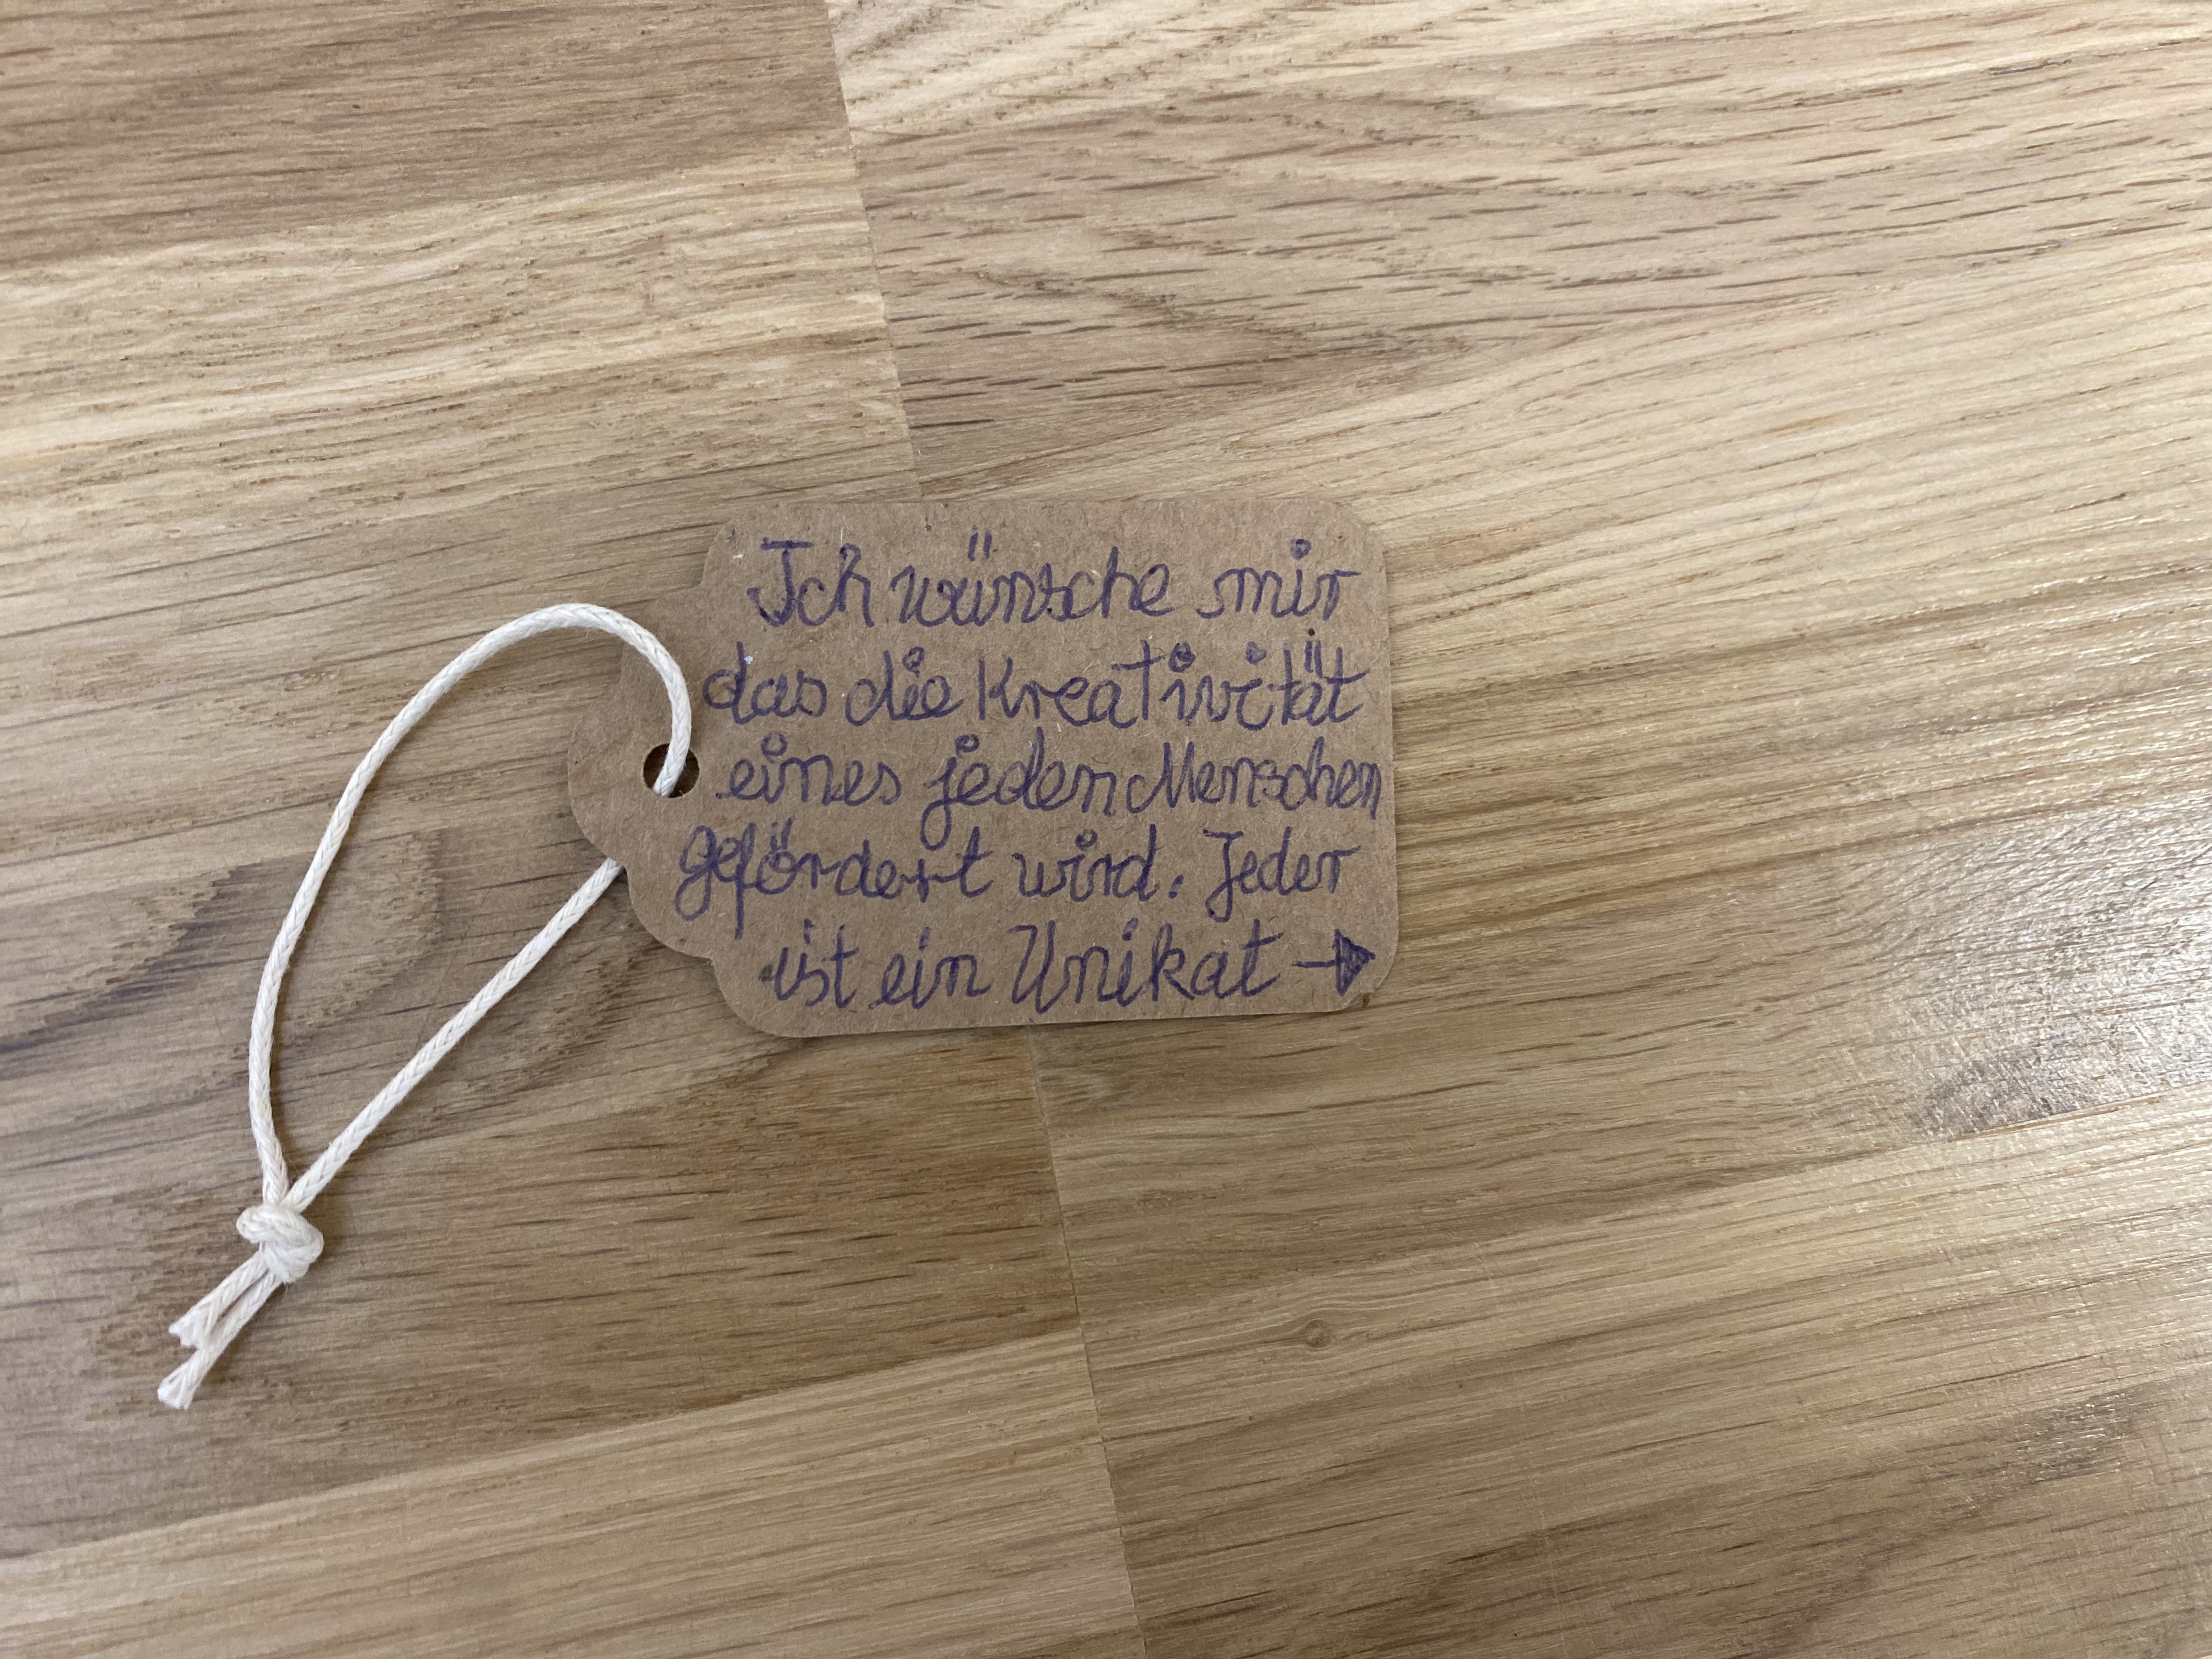 Ich wünsche mir
das die Kreativität
eines jeden Menschen
gefördert wird. Jeder
ist ein Unikat →